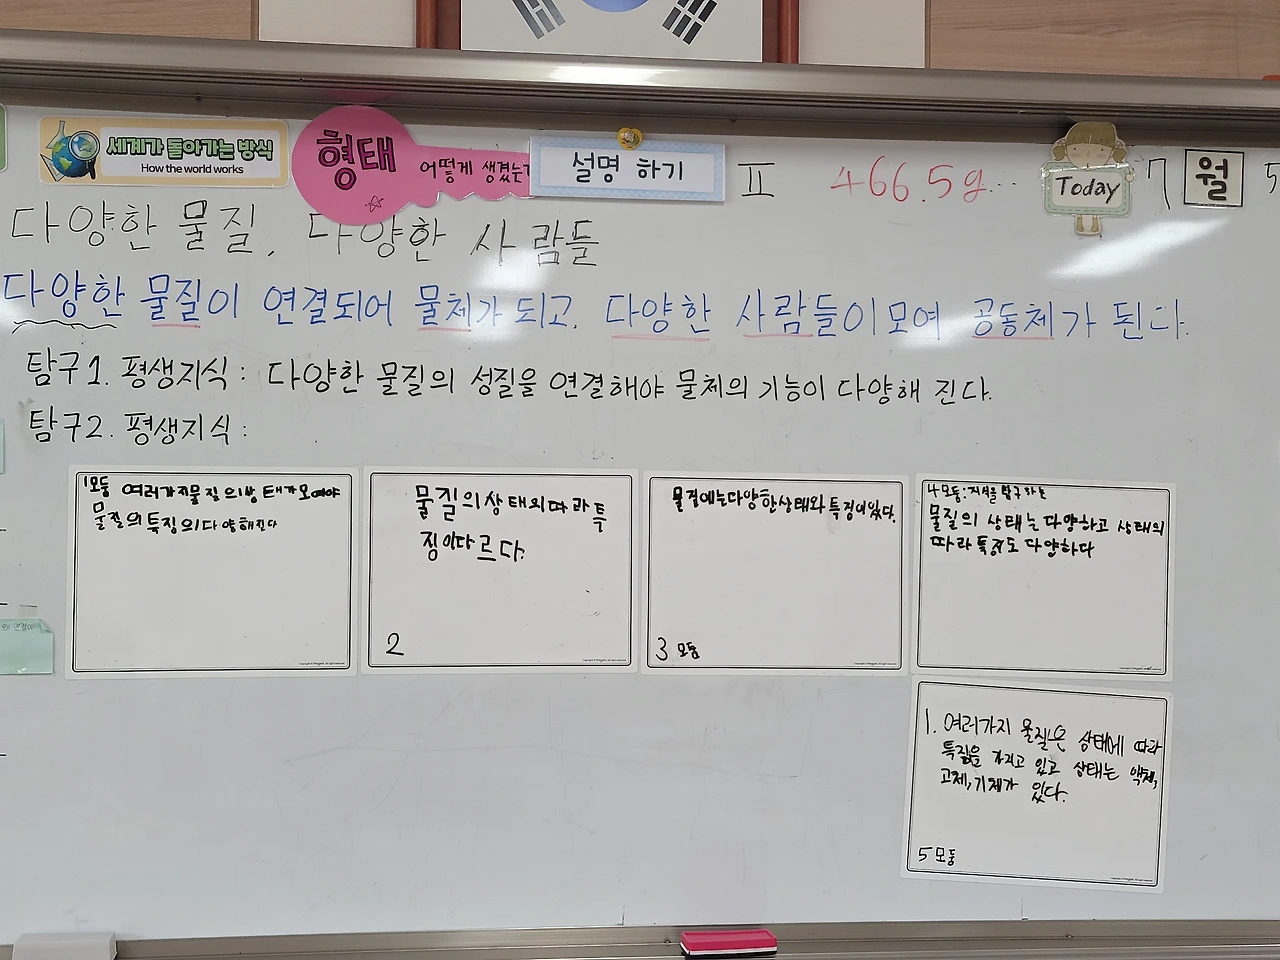 세계가 돌아가는 방식
How the world works
형태
어떻게 생겼는가
설명 하기
II
466.5g...
Today
7 월 5
다양한 물질, 다양한 사람들
다양한 물질이 연결되어 물체가 되고, 다양한 사람들이 모여 공동체가 된다.
탐구1. 평생지식 : 다양한 물질의 성질을 연결해야 물체의 기능이 다양해 진다.
탐구2. 평생지식 :
1모둠 여러가지물질의상태가모여야
물질의특징의다양해진다
물질의상태의따라특
징이다르다.
2
물질에는다양한상태와특징이있다.
3 모둠
4모둠:지식을탐구하는
물질의 상태는다양하고 상태의
따라특징도 다양하다
1. 여러가지 물질은 상태에 따라
특징을 가지고 있고 상태는 액체,
고체,기체가 있다.
5모둠